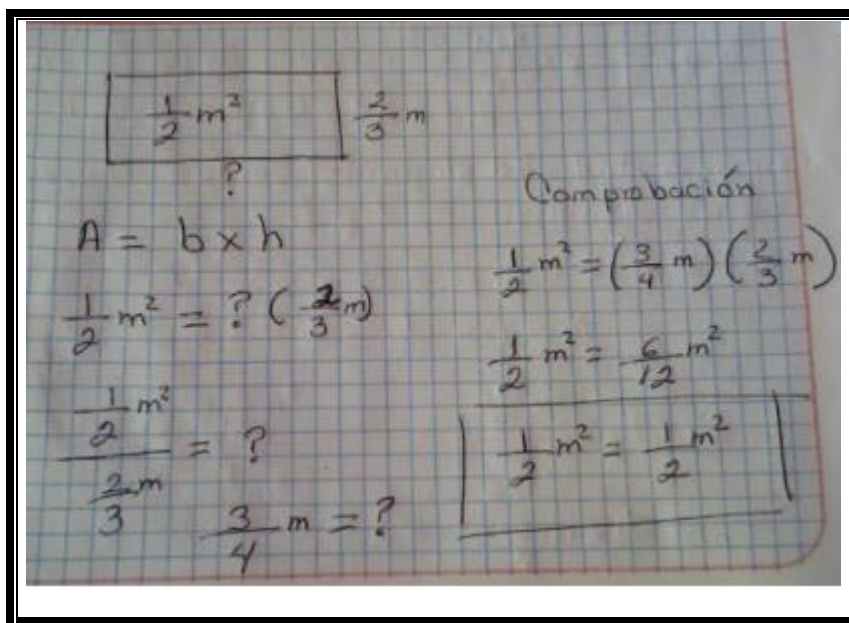 1/2 m² 2/3 m
?
A = b x h
1/2 m² = ? ( 2/3 m)
1/2 m² / 2/3 m = ?
3/4 m = ?
Comprobación
1/2 m² = (3/4 m) (2/3 m)
1/2 m² = 6/12 m²
1/2 m² = 1/2 m²